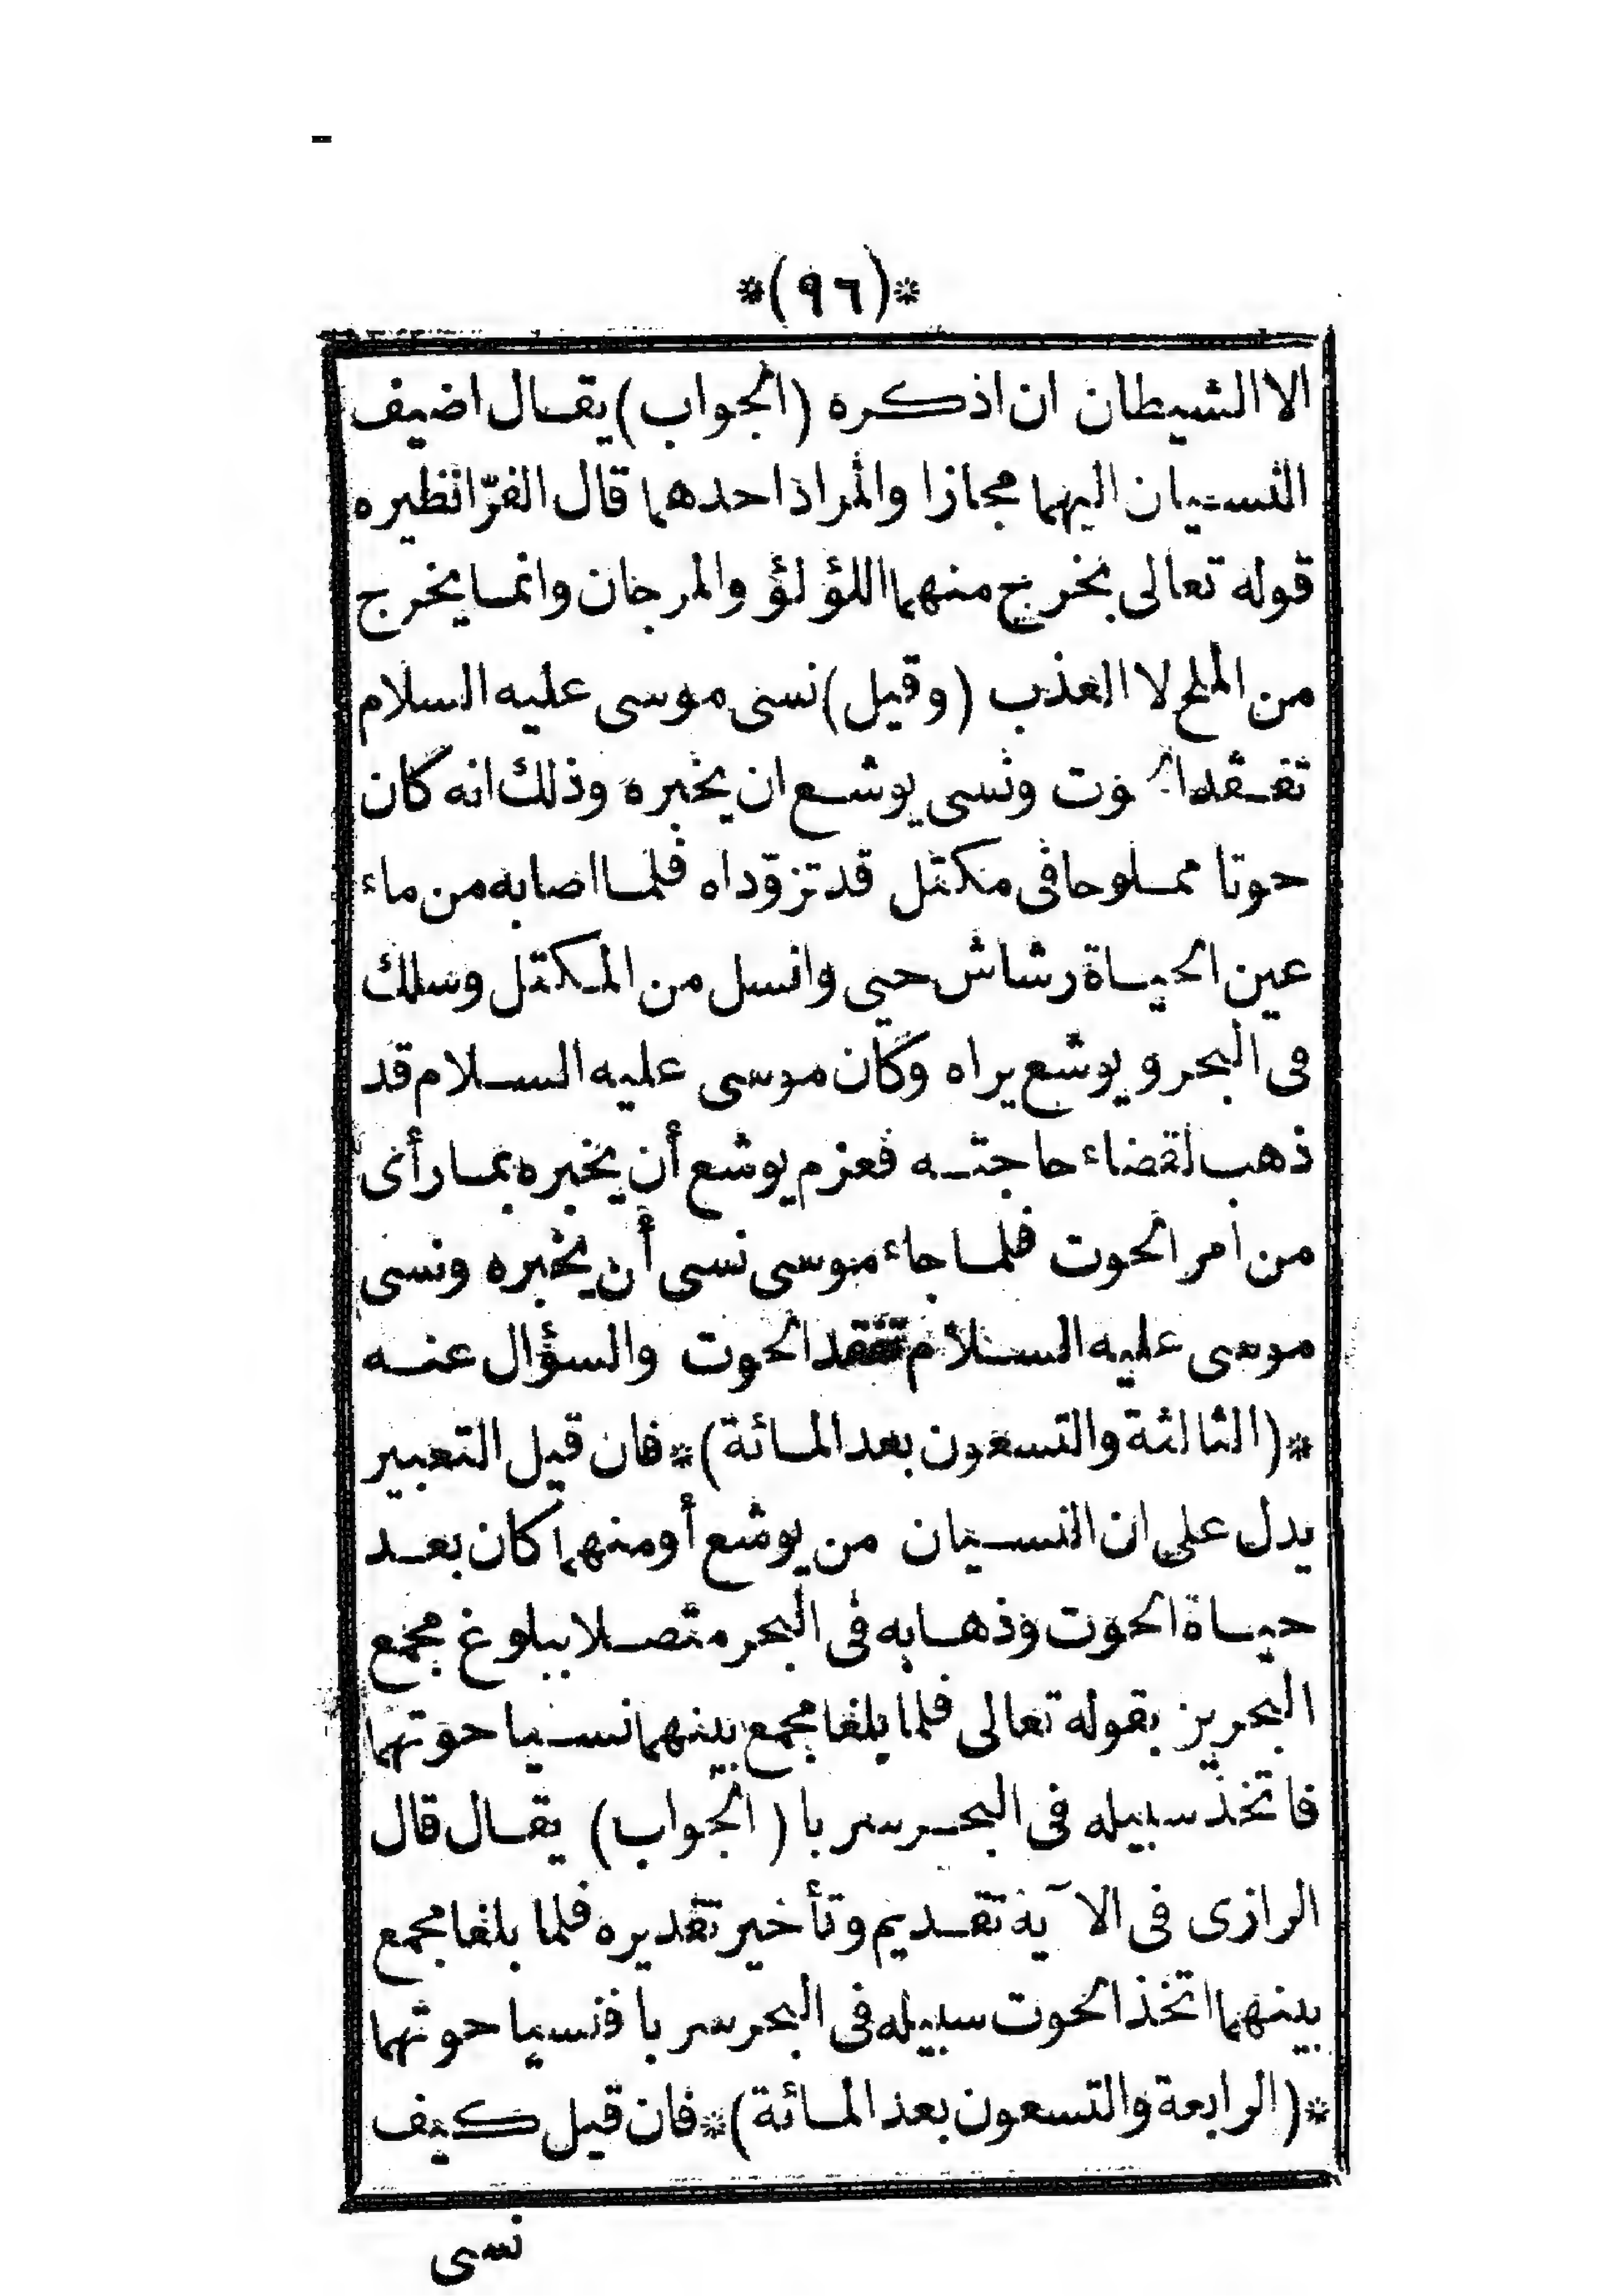 *(٩٦)*
الا الشيطان ان اذكره (الجواب) يقال اضيف
النسيان اليهما مجازا والمراد احدهما قال الفرّا نظيره
قوله تعالى يخرج منهما اللؤلؤ والمرجان وانما يخرج
من الملح لا العذب (وقيل) نسى موسى عليه السلام
تفقد الحوت ونسى يوشع ان يخبره وذلك انه كان
حوتا مملوحا فى مكتل قد تزوّداه فلما اصابه من ماء
عين الحياة رشاش حيى وانسل من المكتل وسلك
فى البحر ويوشع يراه وكان موسى عليه السلام قد
ذهب لقضاء حاجته فعزم يوشع أن يخبره بما رأى
من امر الحوت فلما جاء موسى نسى أن يخبره ونسى
موسى عليه السلام تفقد الحوت والسؤال عنه
*(الثالثة والتسعون بعد المائة)* فان قيل التعبير
يدل على ان النسيان من يوشع أو منهما كان بعد
حياة الحوت وذهابه فى البحر متصلا ببلوغ مجمع
البحرين بقوله تعالى فلما بلغا مجمع بينهما نسيا حوتهما
فاتخذ سبيله فى البحر سربا (الجواب) يقال قال
الرازى فى الآية تقديم وتأخير تقديره فلما بلغا مجمع
بينهما اتخذ الحوت سبيله فى البحر سربا فنسيا حوتهما
*(الرابعة والتسعون بعد المائة)* فان قيل كيف
نسى